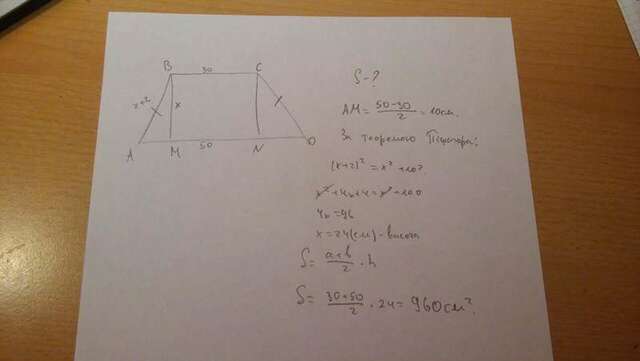 B 30 C
x+2
x
A M 50 N D
S-?
AM = (50-30)/2 = 10см.
За теоремою Піфагора:
(x+2)² = x² + 10².
x² + 4x + 4 = x² + 100
4x = 96
x = 24(см) - висота
S = (a+b)/2 · h
S = (30+50)/2 · 24 = 960см².